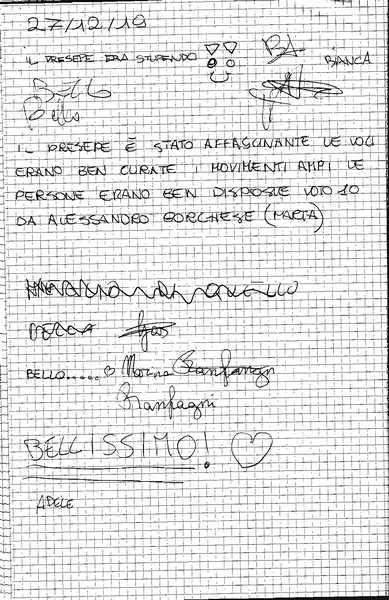 27/12/19
IL PRESEPE ERA STUPENDO
BIANCA
BELLO
Bello
IL PRESEPE È STATO AFFASCINANTE LE VOCI
ERANO BEN CURATE I MOVIMENTI AMPI LE
PERSONE ERANO BEN DISPOSTE VOTO 10
DA ALESSANDRO BORGHESE (MARTA)
BELLO.....
Bianfagni
BELLISSIMO!
ADELE